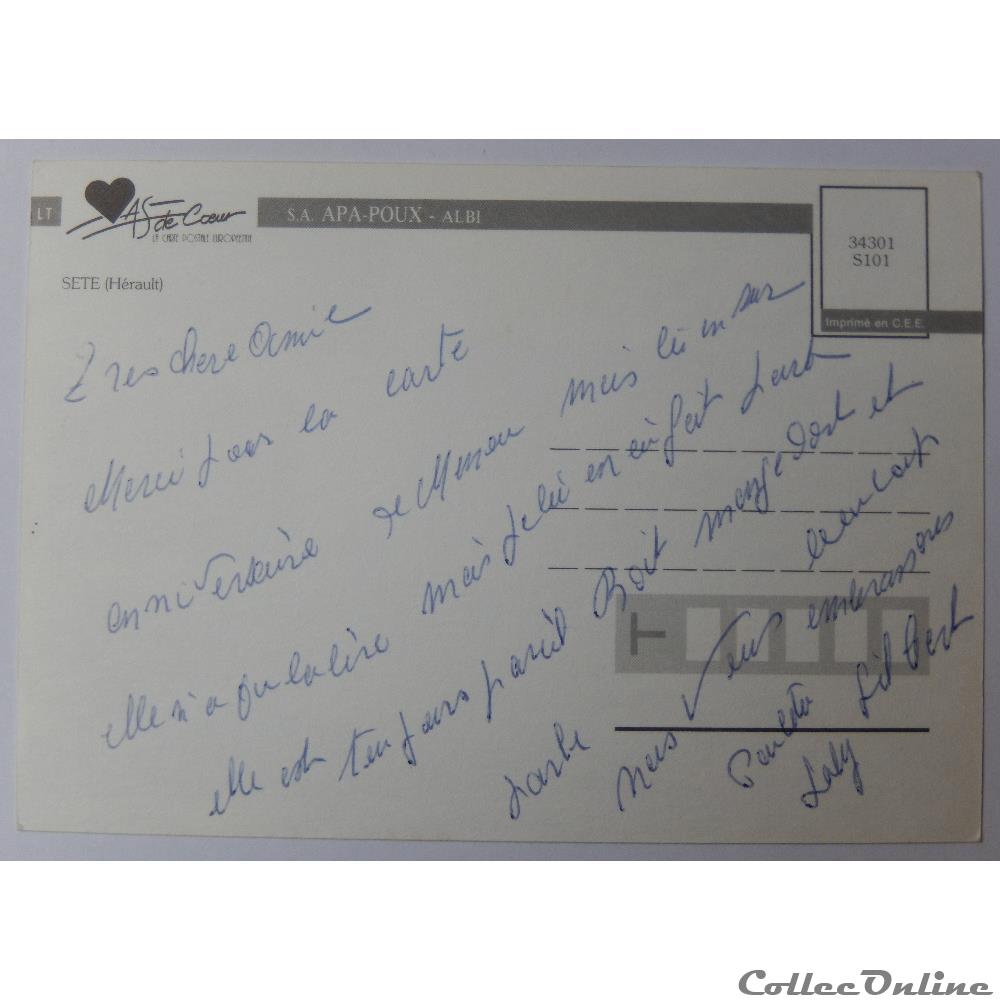 LT
AS de Coeur
LA CARTE POSTALE EUROPEENNE
S.A. APA-POUX - ALBI
34301
S101
Imprimé en C.E.E.
SETE (Hérault)
Tres chere Amie
Merci pour la carte
anniversaire de Meman mais lui en sur
elle n'a qu la lire mais je lui en ai fait part
elle est toujours pareil Boit mange dort et
parle
Nous Vous embrassons
Paulette Gilbert
Laly
CollecOnline